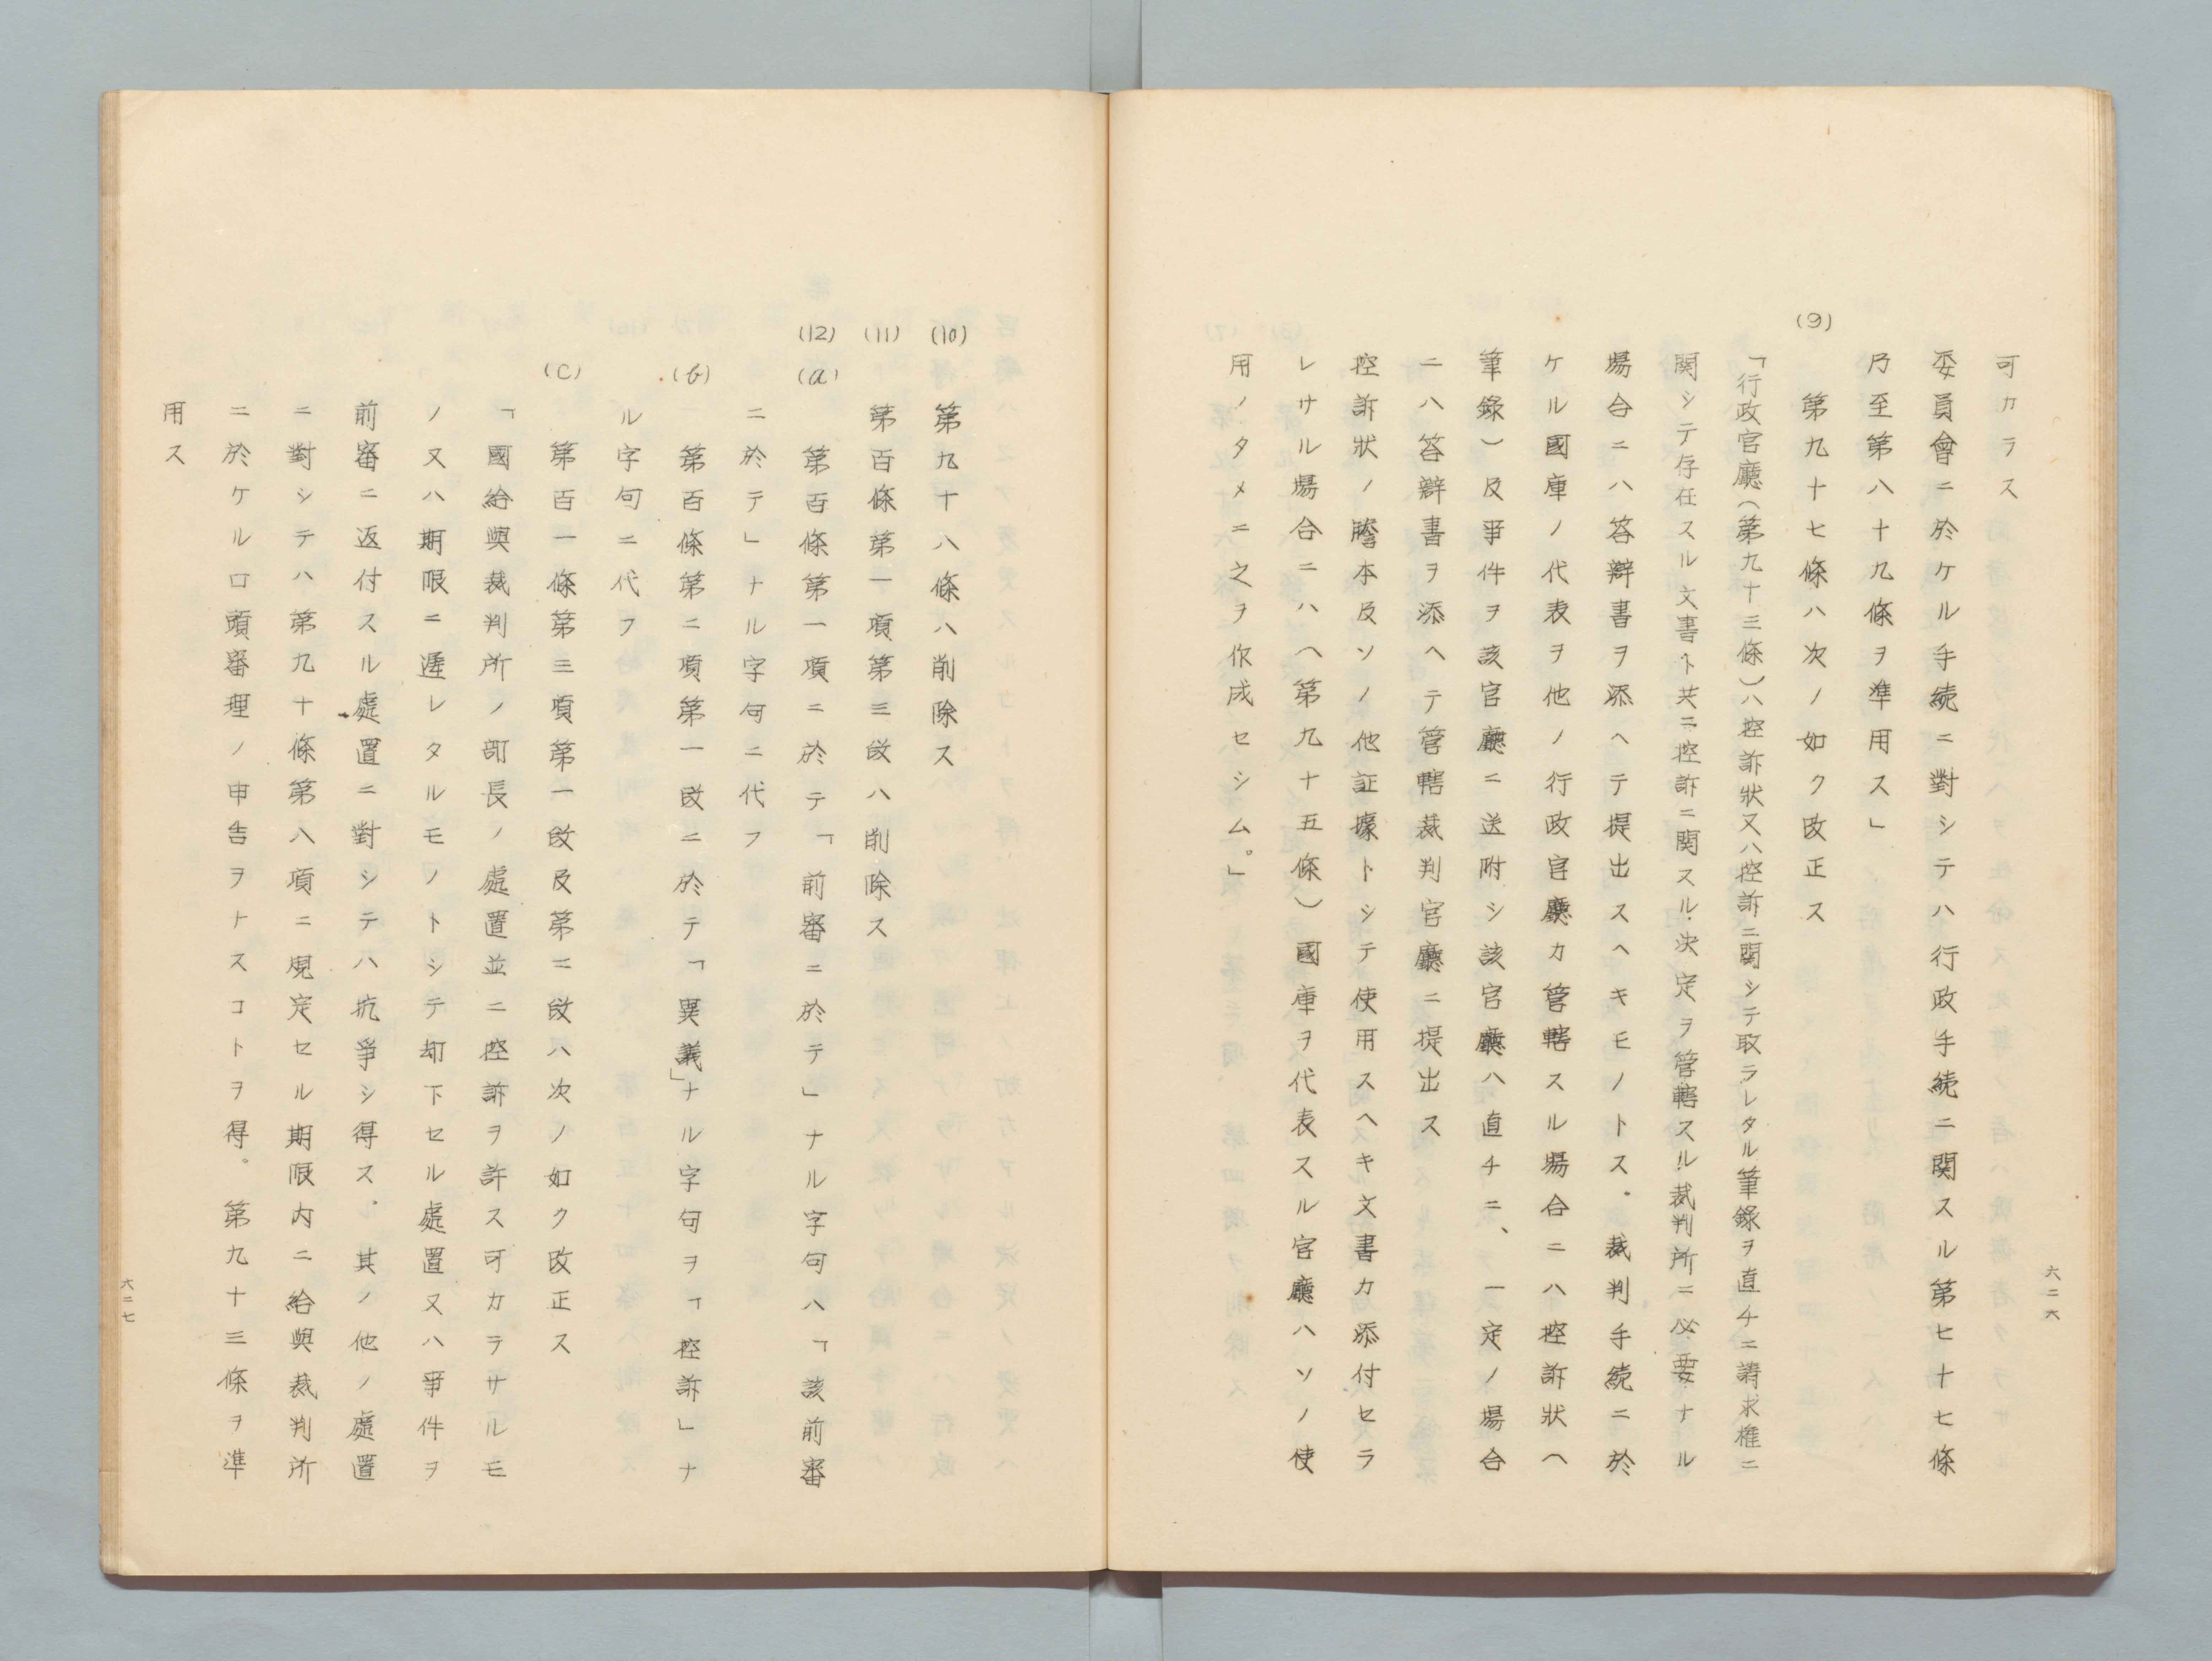 可カラス
委員會ニ於ケル手続ニ對シテハ行政手続ニ関スル第七十七條
乃至第八十九條ヲ準用ス」
(9) 第九十七條ハ次ノ如ク改正ス
「行政官廳(第九十三條)ハ控訴狀又ハ控訴ニ関シテ取ラレタル筆錄ヲ直チニ請求権ニ
関シテ存在スル文書ト共ニ控訴ニ関スル決定ヲ管轄スル裁判所ニ必要ナル
場合ニハ答辯書ヲ添ヘテ提出スヘキモノトス。裁判手続ニ於
ケル國庫ノ代表ヲ他ノ行政官廳カ管轄スル場合ニハ控訴狀ヘ
筆錄)及爭件ヲ該官廳ニ送附シ該官廳ハ直チニ、一定ノ場合
ニハ答辯書ヲ添ヘテ管轄裁判官廳ニ提出ス
控訴狀ノ謄本及ソノ他証據トシテ使用スヘキ文書カ添付セラ
レサル場合ニハヘ第九十五條)國庫ヲ代表スル官廳ハソノ使
用ノタメニ之ヲ作成セシム。」
六二六
(10) 第九十八條ハ削除ス
(11) 第百條第一項第三段ハ削除ス
(12) (a) 第百條第一項ニ於テ「前審ニ於テ」ナル字句ハ「該前審
ニ於テ」ナル字句ニ代フ
(b) 第百條第二項第一段ニ於テ「異議」ナル字句ヲ「控訴」ナ
ル字句ニ代フ
(c) 第百一條第三項第一段及第二段ハ次ノ如ク改正ス
「國給與裁判所ノ部長ノ處置並ニ控訴ヲ許ス可カラサルモ
ノ又ハ期限ニ遅レタルモノトシテ却下セル處置又ハ爭件ヲ
前審ニ返付スル處置ニ對シテハ抗爭シ得ス。其ノ他ノ處置
ニ對シテハ第九十條第八項ニ規定セル期限内ニ給與裁判所
ニ於ケル口頭審理ノ申告ヲナスコトヲ得。第九十三條ヲ準
用ス
六二七